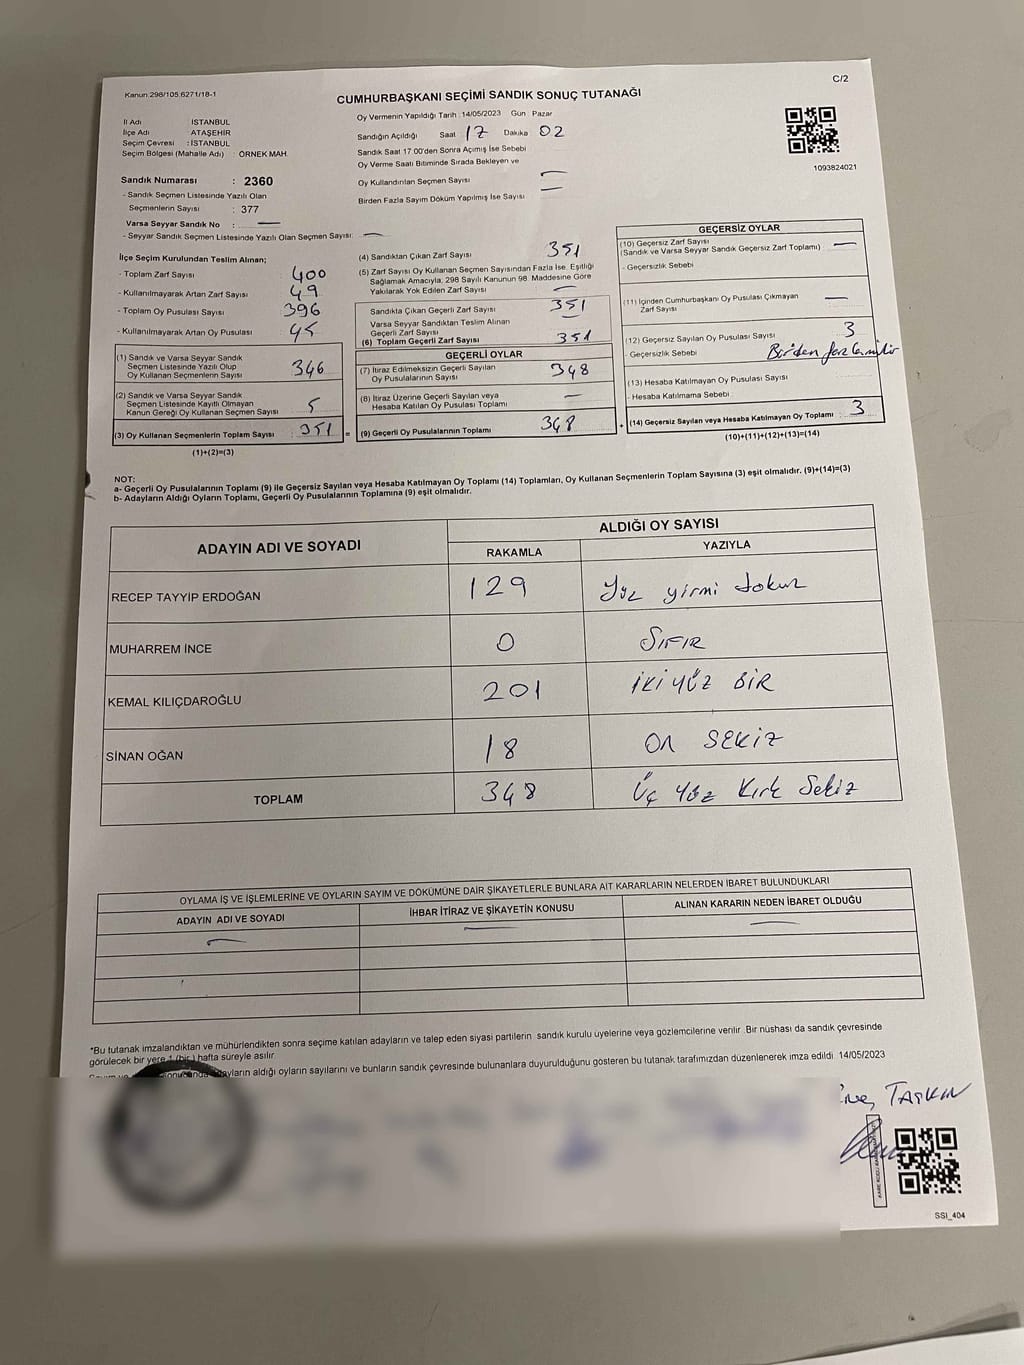 C/2
Kanun:298/105;6271/18-1
CUMHURBAŞKANI SEÇİMİ SANDIK SONUÇ TUTANAĞI
İl Adı : İSTANBUL
İlçe Adı : ATAŞEHİR
Seçim Çevresi : İSTANBUL
Seçim Bölgesi (Mahalle Adı) : ÖRNEK MAH.
Sandık Numarası : 2360
- Sandık Seçmen Listesinde Yazılı Olan
Seçmenlerin Sayısı : 377
Varsa Seyyar Sandık No : —
- Seyyar Sandık Seçmen Listesinde Yazılı Olan Seçmen Sayısı: —
Oy Vermenin Yapıldığı Tarih : 14/05/2023 Gün : Pazar
Sandığın Açıldığı Saat 17 Dakika 02
Sandık Saat 17:00'den Sonra Açılmış İse Sebebi
Oy Verme Saati Bitiminde Sırada Bekleyen ve
Oy Kullandırılan Seçmen Sayısı —
Birden Fazla Sayım Döküm Yapılmış İse Sayısı —
1093824021
İlçe Seçim Kurulundan Teslim Alınan;
- Toplam Zarf Sayısı : 400
- Kullanılmayarak Artan Zarf Sayısı : 49
- Toplam Oy Pusulası Sayısı : 396
- Kullanılmayarak Artan Oy Pusulası : 45
(1) Sandık ve Varsa Seyyar Sandık
Seçmen Listesinde Yazılı Olup
Oy Kullanan Seçmenlerin Sayısı : 346
(2) Sandık ve Varsa Seyyar Sandık
Seçmen Listesinde Kayıtlı Olmayan
Kanun Gereği Oy Kullanan Seçmen Sayısı : 5
(3) Oy Kullanan Seçmenlerin Toplam Sayısı : 351
(1)+(2)=(3)
(4) Sandıktan Çıkan Zarf Sayısı 351
(5) Zarf Sayısı Oy Kullanan Seçmen Sayısından Fazla İse, Eşitliği
Sağlamak Amacıyla; 298 Sayılı Kanunun 98. Maddesine Göre
Yakılarak Yok Edilen Zarf Sayısı —
Sandıkta Çıkan Geçerli Zarf Sayısı 351
Varsa Seyyar Sandıktan Teslim Alınan
Geçerli Zarf Sayısı —
(6) Toplam Geçerli Zarf Sayısı 351
GEÇERLİ OYLAR
(7) İtiraz Edilmeksizin Geçerli Sayılan
Oy Pusulalarının Sayısı 348
(8) İtiraz Üzerine Geçerli Sayılan veya
Hesaba Katılan Oy Pusulası Toplamı —
= (9) Geçerli Oy Pusulalarının Toplamı 348
GEÇERSİZ OYLAR
(10) Geçersiz Zarf Sayısı
(Sandık ve Varsa Seyyar Sandık Geçersiz Zarf Toplamı) —
- Geçersizlik Sebebi
(11) İçinden Cumhurbaşkanı Oy Pusulası Çıkmayan
Zarf Sayısı —
(12) Geçersiz Sayılan Oy Pusulası Sayısı 3
- Geçersizlik Sebebi Birden fazla mühür
(13) Hesaba Katılmayan Oy Pusulası Sayısı
- Hesaba Katılmama Sebebi
+ (14) Geçersiz Sayılan veya Hesaba Katılmayan Oy Toplamı 3
(10)+(11)+(12)+(13)=(14)
NOT:
a- Geçerli Oy Pusulalarının Toplamı (9) ile Geçersiz Sayılan veya Hesaba Katılmayan Oy Toplamı (14) Toplamları, Oy Kullanan Seçmenlerin Toplam Sayısına (3) eşit olmalıdır. (9)+(14)=(3)
b- Adayların Aldığı Oyların Toplamı, Geçerli Oy Pusulalarının Toplamına (9) eşit olmalıdır.
ADAYIN ADI VE SOYADI ALDIĞI OY SAYISI
RAKAMLA YAZIYLA
RECEP TAYYIP ERDOĞAN 129 Yüz yirmi dokuz
MUHARREM İNCE 0 SIFIR
KEMAL KILIÇDAROĞLU 201 İKİ YÜZ BİR
SİNAN OĞAN 18 ON SEKİZ
TOPLAM 348 Üç Yüz Kırk Sekiz
OYLAMA İŞ VE İŞLEMLERİNE VE OYLARIN SAYIM VE DÖKÜMÜNE DAİR ŞİKAYETLERLE BUNLARA AİT KARARLARIN NELERDEN İBARET BULUNDUKLARI
ADAYIN ADI VE SOYADI İHBAR İTİRAZ VE ŞİKAYETİN KONUSU ALINAN KARARIN NEDEN İBARET OLDUĞU
— — —
*Bu tutanak imzalandıktan ve mühürlendikten sonra seçime katılan adayların ve talep eden siyasi partilerin sandık kurulu üyelerine veya gözlemcilerine verilir. Bir nüshası da sandık çevresinde
görülecek bir yere 1 (bir) hafta süreyle asılır.
adayların aldığı oyların sayılarını ve bunların sandık çevresinde bulunanlara duyurulduğunu gösteren bu tutanak tarafımızdan düzenlenerek imza edildi. 14/05/2023
TAŞKIN
SSI_404